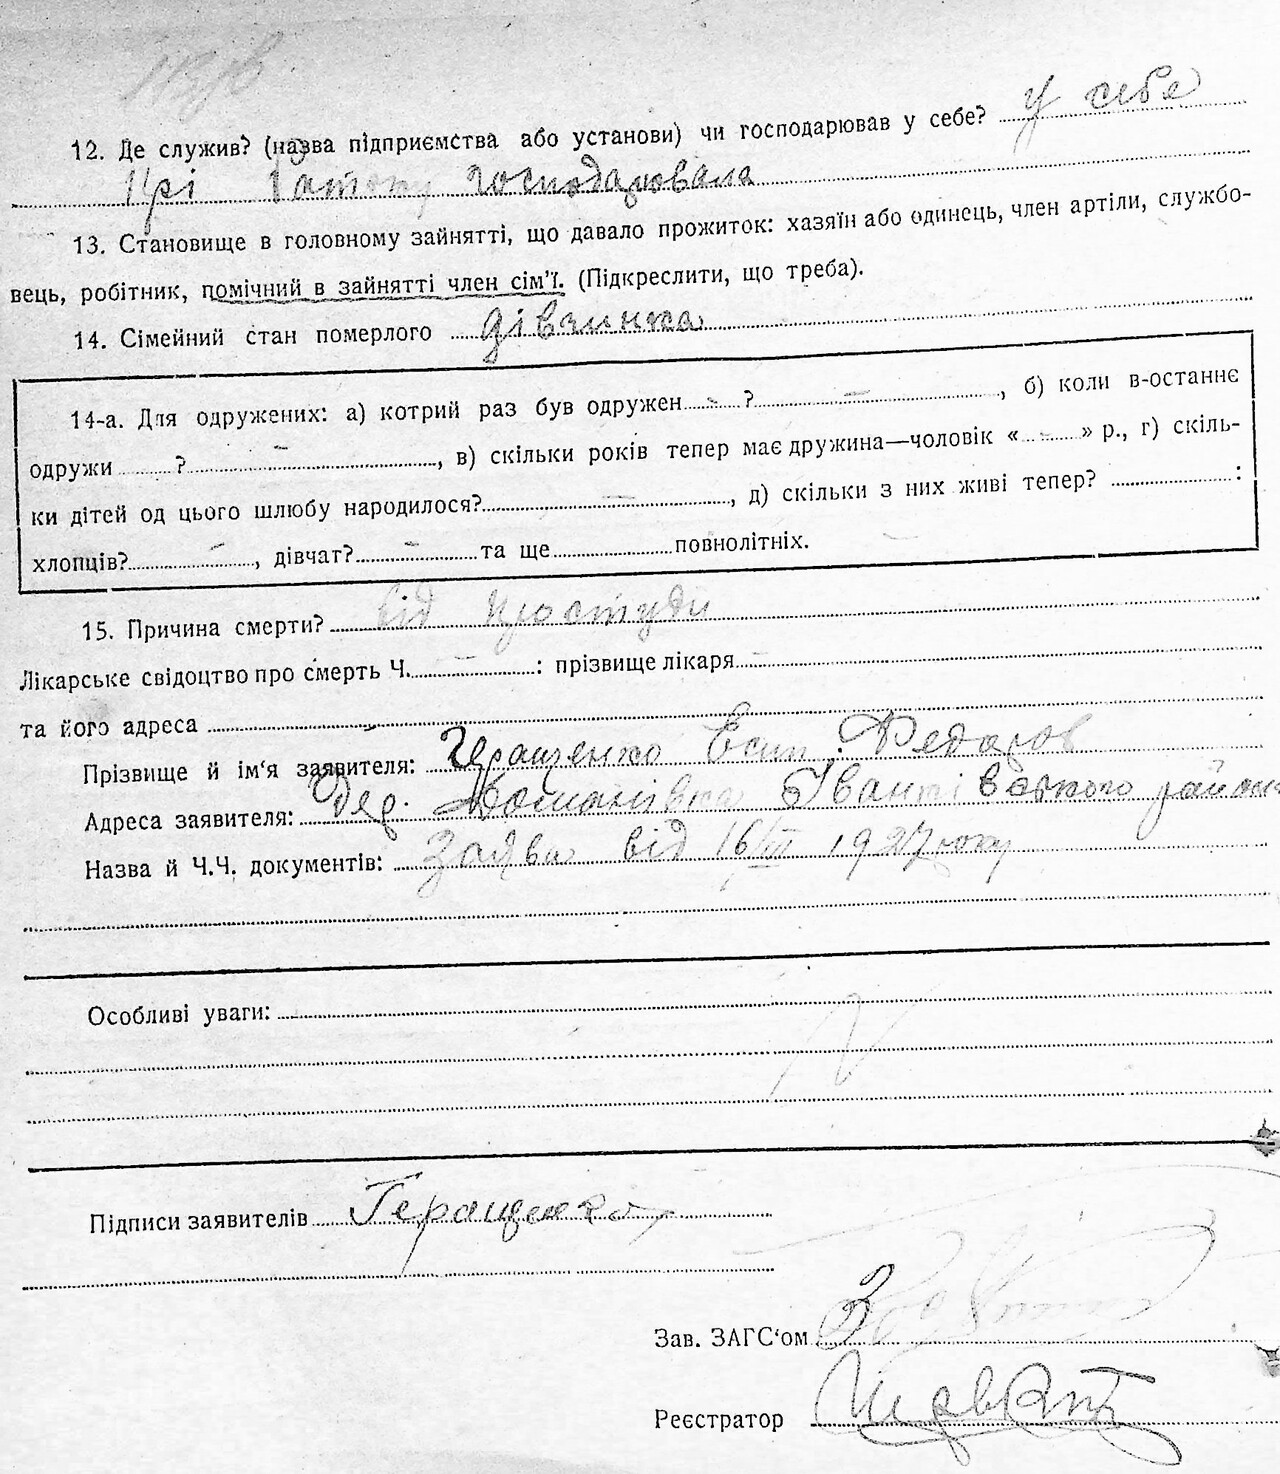 12. Де служив? (назва підприємства або установи) чи господарював у себе? у себе
Прі батьку господарювала
13. Становище в головному зайнятті, що давало прожиток: хазяїн або одинець, член артіли, службо-
вець, робітник, помічний в зайнятті член сім'ї. (Підкреслити, що треба).
14. Сімейний стан померлого дівчинка
14-а. Для одружених: а) котрий раз був одружен - ? -, б) коли в-останнє
одружи ? -, в) скільки років тепер має дружина—чоловік « - » р., г) скіль-
ки дітей од цього шлюбу народилося? -, д) скільки з них живі тепер? :
хлопців? -, дівчат? - та ще повнолітніх.
15. Причина смерти? від простуди
Лікарське свідоцтво про смерть Ч. - : прізвище лікаря -
та його адреса -
Прізвище й ім'я заявителя: Геращенко Есип Федоров
Адреса заявителя: дер. района
Назва й Ч.Ч. документів: Заява від 16/III 1927 року
Особливі уваги:
Підписи заявителів Геращенко
Зав. ЗАГС'ом
Реєстратор